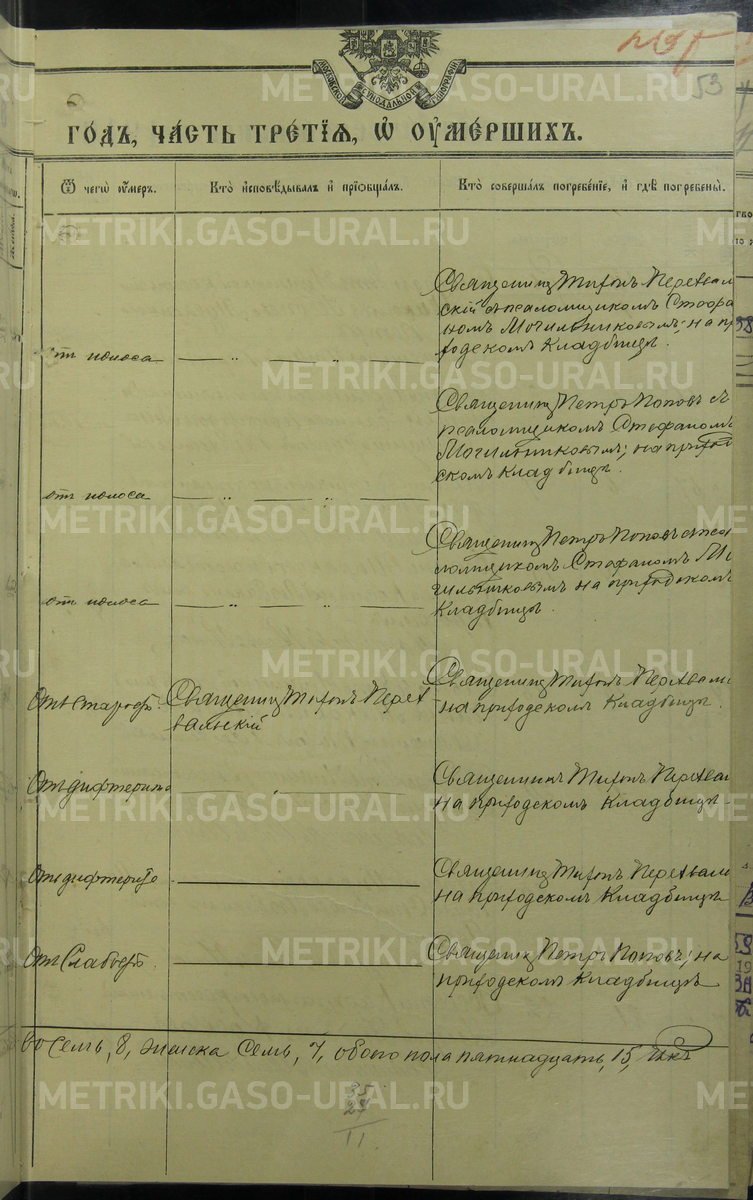 53
МОСКОВСКОЙ СѴНОДАЛЬНОЙ ТИПОГРАФІИ
ГО́ДЪ, ЧА́СТЬ ТРЕ́ТІѦ, Ѡ҆ ОУ҆МЕ́РШИХЪ.
Ѿ чегѡ̀ оу҆́меръ.
Кто̀ и҆сповѣ́дывалъ и҆ прїѡбща́лъ.
Кто̀ соверша́лъ погребе́нїе, и҆ гдѣ̀ погребены̀.
отъ поноса
Священникъ Тихонъ Перехваль
скій съ псаломщикомъ Стефа
номъ Могильниковымъ; на при
ходскомъ кладбищѣ.
отъ поноса
Священникъ Петръ Поповъ съ
псаломщикомъ Стефаномъ
Могильниковымъ; на приход
скомъ кладбищѣ.
отъ поноса
Священникъ Петръ Поповъ съ псa
ломщикомъ Стефаномъ Мо
гильниковымъ на приходскомъ
кладбищѣ.
Отъ старости.
Священникъ Тихонъ Перех
вальскій
Священникъ Тихонъ Перехваль
на приходскомъ кладбищѣ.
Отъ дифтерита
Священникъ Тихонъ Перехваль
на приходскомъ кладбищѣ.
Отъ дифтерита
Священникъ Тихонъ Перехваль
на приходскомъ кладбищѣ
Отъ слабости.
Священникъ Петръ Поповъ; на
приходскомъ кладбищѣ
восемь, 8, женска семь, 7, обоего пола пятнадцать, 15,
35
24
11
METRIKI.GASO-URAL.RU